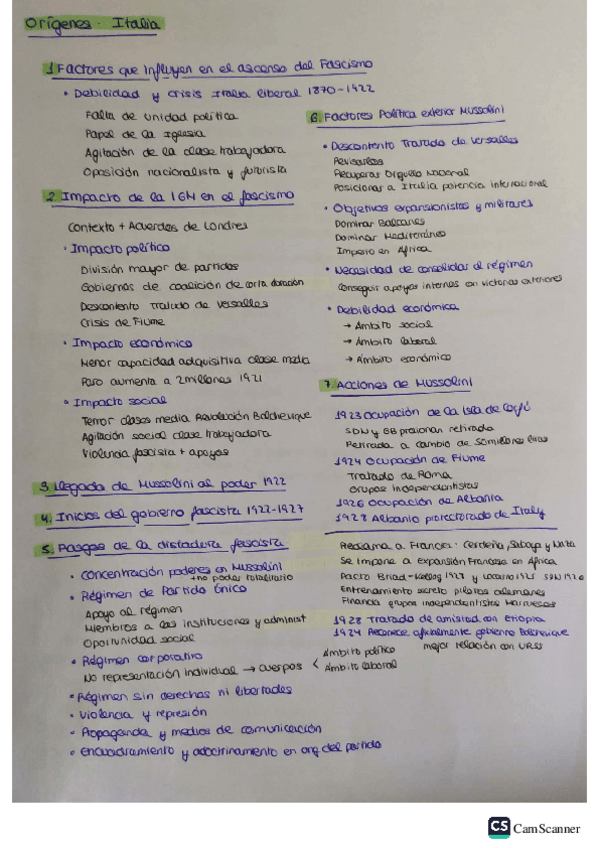 Orígenes. Italia
1. Factores que influyen en el ascenso del Fascismo
• Debilidad y crisis Italia liberal 1870-1922
Falla de unidad política
Papel de la Iglesia
Agitación de la clase trabajadora
Oposición nacionalista y futurista
2. Impacto de la IGM en el fascismo
Contexto + Acuerdos de Londres
• Impacto político
División mayor de partidos
Gobiernos de coalición de corta duración
Descontento Tratado de Versalles
Crisis de Fiume
• Impacto económico
Menor capacidad adquisitiva clase media
Paro aumenta a 2 millones 1921
• Impacto social
Terror clases media Revolución Bolchevique
Agitación social clase trabajadora
Violencia fascista + apoyos
3. Llegada de Mussolini al poder 1922
4. Inicios del gobierno fascista 1922-1927
5. Rasgos de la dictadura fascista
• Concentración poderes en Mussolini
+ no poder totalitario
• Régimen de Partido Único
Apoyo al régimen
Miembros a las instituciones y administ
Oportunidad social
• Régimen corporativo
No representación individual → cuerpos < Ámbito político
Ámbito laboral
• Régimen sin derechos ni libertades
• Violencia y represión
• Propaganda y medios de comunicación
• encuadramiento y adoctrinamiento en org del partido
6. Factores Política exterior Mussolini
• Descontento Tratado de Versalles
Revisarlos
Recuperar Orgullo Nacional
Posicionar a Italia potencia internacional
• Objetivos expansionistas y militares
Dominar Balcanes
Dominar Mediterráneo
Imperio en África
• Necesidad de consolidar el régimen
Conseguir apoyos internos con victorias exteriores
• Debilidad económica
→ Ámbito social
→ Ámbito laboral
→ Ámbito económico
7. Acciones de Mussolini
1923 Ocupación de la Isla de Corfú
SDN y GB presionan retirada
Retirada a cambio de 50 millones liras
1924 Ocupación de Fiume
Tratado de Roma
Grupos independentistas
1926 Ocupación de Albania
1927 Albania protectorado de Italy
Reclama a Francia: Cerdeña, Saboya y Niza
Se impone a expansión Francesa en África
Pacto Briad-Kellog 1927 y Locarno 1925 SDN 1920
Entrenamiento secreto pilotos alemanes
Financia grupos independentistas
1928 Tratado de amistad con Etiopía
1924 Reconoce oficialmente gobierno Bolchevique
mejor relación con URSS
CS CamScanner